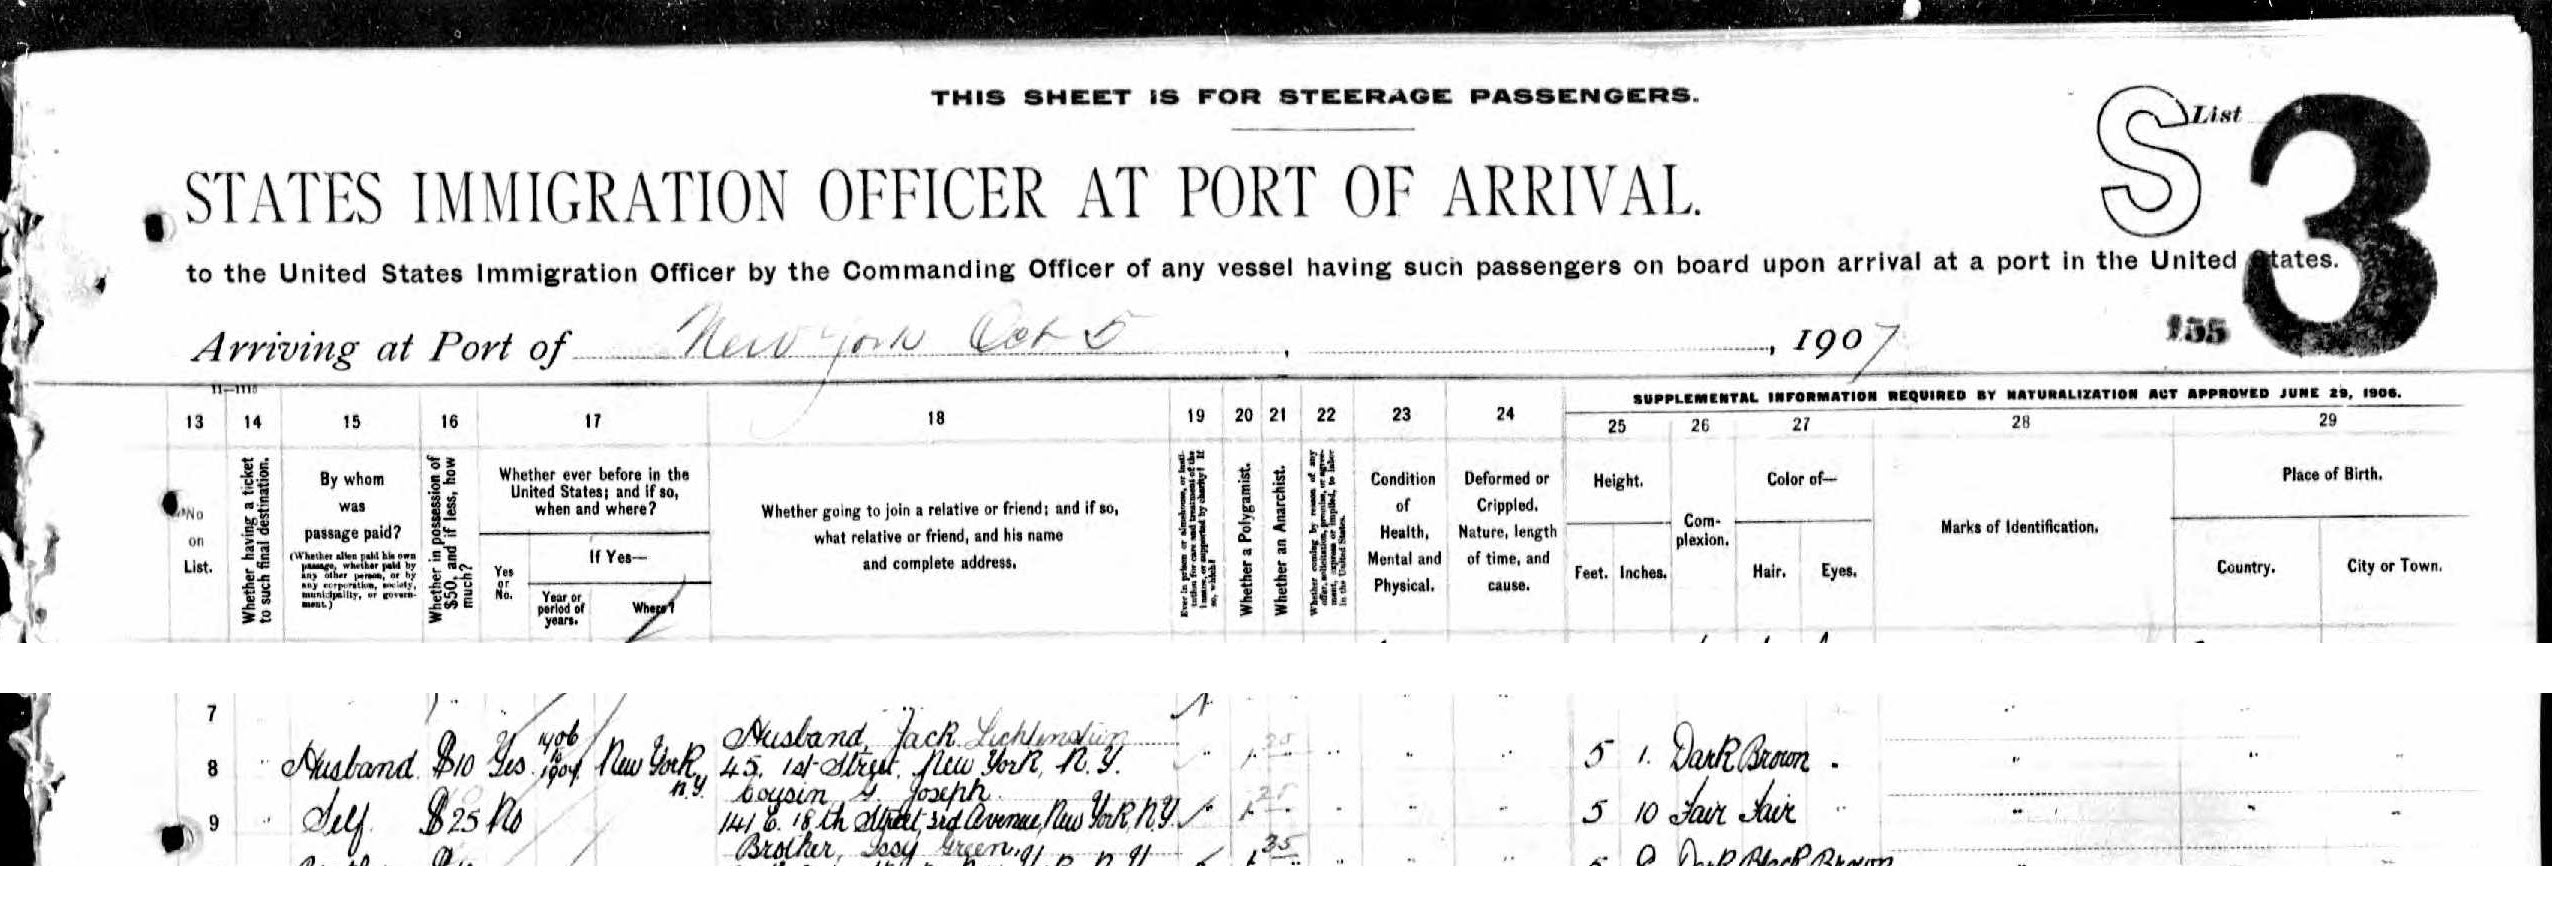 THIS SHEET IS FOR STEERAGE PASSENGERS.
List
S 3
STATES IMMIGRATION OFFICER AT PORT OF ARRIVAL.
to the United States Immigration Officer by the Commanding Officer of any vessel having such passengers on board upon arrival at a port in the United States.
Arriving at Port of New York Oct 5, , 1907
155
11—1113
SUPPLEMENTAL INFORMATION REQUIRED BY NATURALIZATION ACT APPROVED JUNE 29, 1906.
13 14 15 16 17 18 19 20 21 22 23 24 25 26 27 28 29
No on List.
Whether having a ticket to such final destination.
By whom was passage paid?
(Whether alien paid his own passage, whether paid by any other person, or by any corporation, society, municipality, or government.)
Whether in possession of $50, and if less, how much?
Whether ever before in the United States; and if so, when and where?
Yes or No.
If Yes—
Year or period of years.
Where?
Whether going to join a relative or friend; and if so, what relative or friend, and his name and complete address.
Ever in prison or almshouse, or institution for care and treatment of the insane, or supported by charity? If so, which?
Whether a Polygamist.
Whether an Anarchist.
Whether coming by reason of any offer, solicitation, promise, or agreement, express or implied, to labor in the United States.
Condition of Health, Mental and Physical.
Deformed or Crippled. Nature, length of time, and cause.
Height.
Feet. Inches.
Complexion.
Color of—
Hair. Eyes.
Marks of Identification.
Place of Birth.
Country. City or Town.
7
Husband, Jack Lichtenstein
8 " Husband $10 Yes 1906 to 1907 New York N.Y. 45. 1st Street. New York, N.Y. 5 1. Dark Brown
Cousin G. Joseph
9 " Self. $25 No 141 E. 18th Street, 3rd Avenue, New York, N.Y. 5 10 Fair Fair "
Brother, Issy Green,
5 9 Dark Black Brown